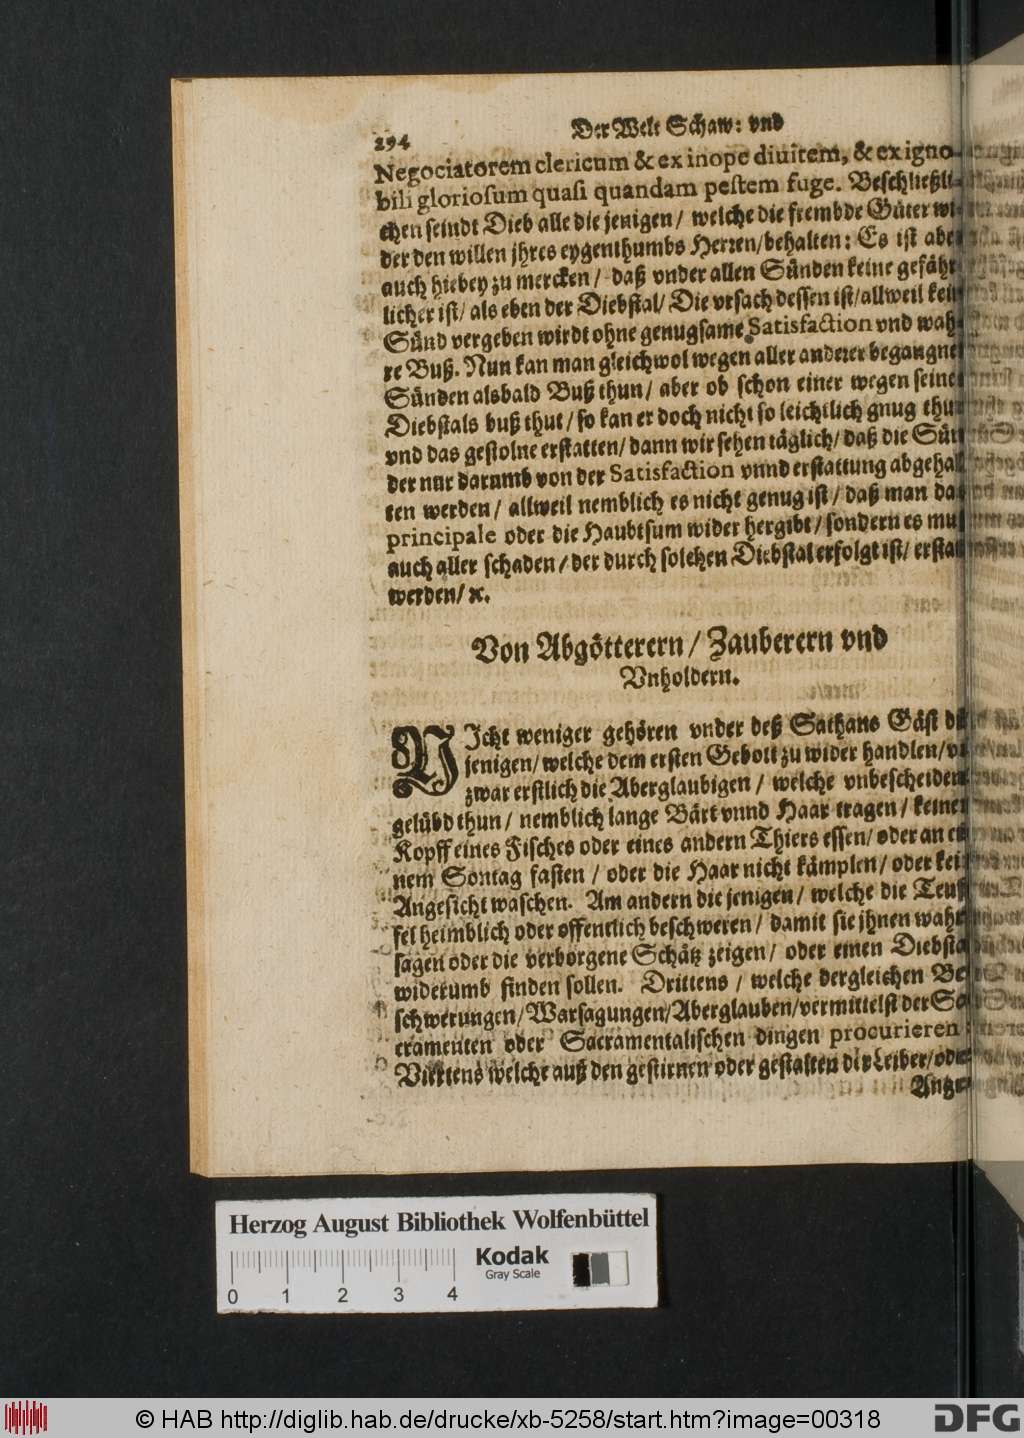 294
Der Welt Schaw: vnd
Negociatorem clericum & ex inope diuitem, & ex igno-
bili gloriosum quasi quandam pestem fuge. Beschließli-
chen seindt Dieb alle die jenigen / welche die frembde Güter wi-
der den willen jhres eygenthumbs Herren/behalten: Es ist aber
auch hiebey zu mercken / daß vnder allen Sünden keine gefähr-
licher ist/ als eben der Diebstal/ Die vrsach dessen ist/allweil kein
Sünd vergeben wirdt ohne genugsame Satisfaction vnd wah-
re Buß. Nun kan man gleichwol wegen aller anderer begangner
Sünden alsbald Buß thun/ aber ob schon einer wegen seines
Diebstals buß thut / so kan er doch nicht so leichtlich gnug thun
vnd das gestolne erstatten/ dann wir sehen täglich/ daß die Sün-
der nur darumb von der Satisfaction vnnd erstattung abgehal-
ten werden / allweil nemblich es nicht genug ist / daß man das
principale oder die Haubtsum wider hergibt / sondern es muß
auch aller schaden / der durch solchen Diebstal erfolgt ist/ erstatt
werden/ ꝛc.
Von Abgötterern / Zauberern vnd
Vnholdern.
NIcht weniger gehören vnder deß Sathans Gäst die
jenigen/ welche dem ersten Gebott zu wider handlen/
zwar erstlich die Aberglaubigen / welche vnbescheidene
gelübd thun / nemblich lange Bärt vnnd Haar tragen / keinen
Kopff eines Fisches oder eines andern Thiers essen/ oder an ei-
nem Sontag fasten / oder die Haar nicht kämplen/ oder kein
Angesicht waschen. Am andern die jenigen / welche die Teuf-
fel heimblich oder offentlich beschweren / damit sie jhnen wahr-
sagen oder die verborgene Schätz zeigen / oder einen Diebstal
widerumb finden sollen. Drittens / welche dergleichen Be-
schwerungen/ Warsagungen/Aberglauben/vermittelst der Sa-
cramenten oder Sacramentalischen dingen procurieren:
Vierttens welche auß den gestirnen oder gestalten der Leiber/ oder
Antze-
Herzog August Bibliothek Wolfenbüttel
Kodak
Gray Scale
0 1 2 3 4
© HAB http://diglib.hab.de/drucke/xb-5258/start.htm?image=00318
DFG